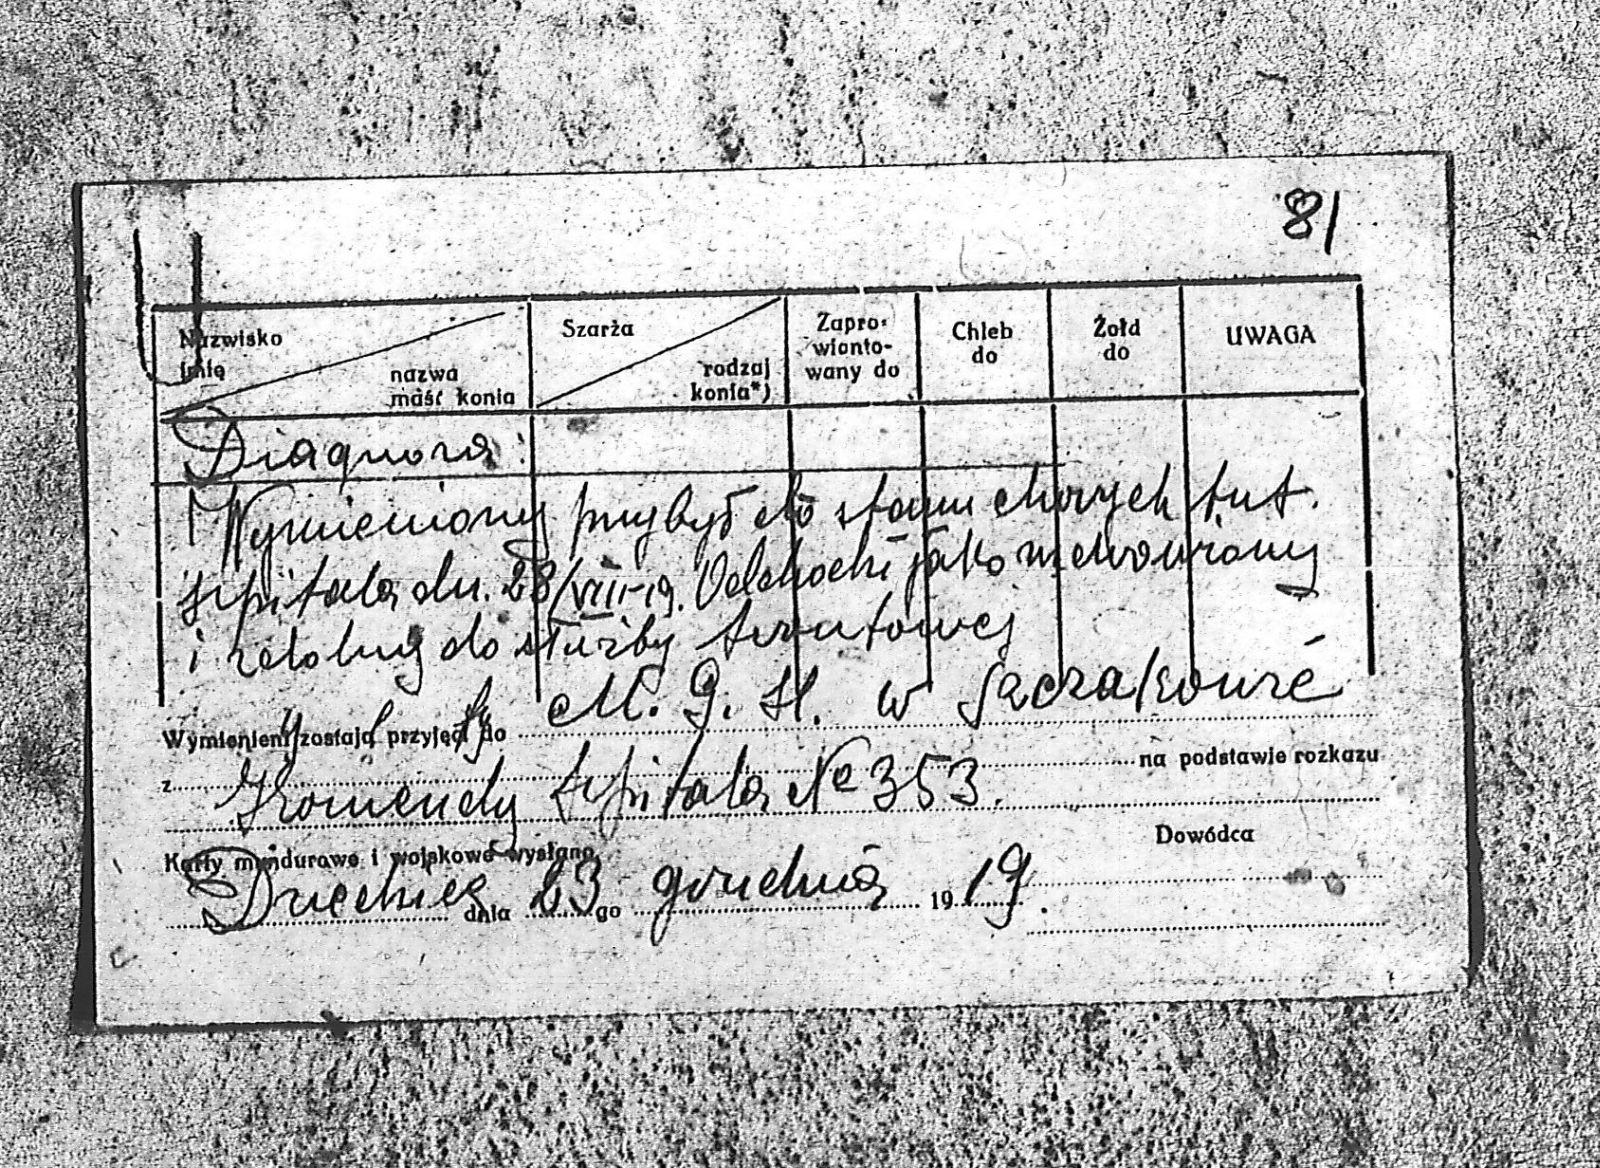 81
Nazwisko
imię
nazwa
maść konia
Szarża
rodzaj
konia*)
Zapro-
wianto-
wany do
Chleb
do
Żołd
do
UWAGA
Diagnoza:
Wymieniony przybył do stanu chorych tut.
szpitala dn. 28/VIII-19. Odchodzi jako uzdrowiony
i zdolny do służby frontowej
Wymienieni zostają przyjęci do M. G. H. w Szczakowie
z na podstawie rozkazu
Komendy szpitala № 353.
Dowódca
Karty mundurowe i wojskowe wysłano
Dziedzice dnia 23 go grudnia 1919.